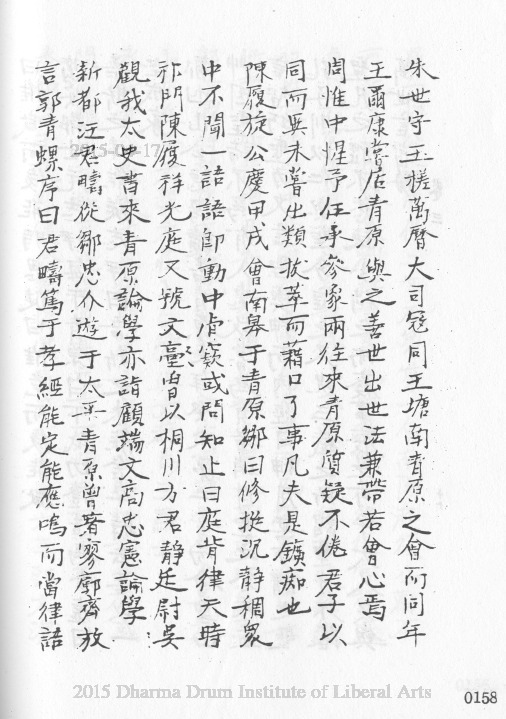 朱世守玉槎萬曆大司冦同王塘南青原之會而同年
王爾康嘗居青原與之善世出世法兼帶若會心焉
周惟中惺予任承參家兩往來青原質疑不倦君子以
同而異未嘗出類拔萃而藉口了事凡夫是鑛痴也
陳履旋公慶甲戌會南皋于青原鄒曰修挺沉静稠衆
中不聞一語語即動中虛窾或問知止曰庭背律天時
祁門陳履祥光庭又號文臺曾以桐川方君静延尉吳
觀我太史書來青原論學亦詣顧端文高忠憲論學
新都汪君疇從鄒忠介遊于太平青原曾著寥廓齊放
言郭青螺序曰君疇篤于孝經能定能應嗚而當律語
2015 Dharma Drum Institute of Liberal Arts
0158